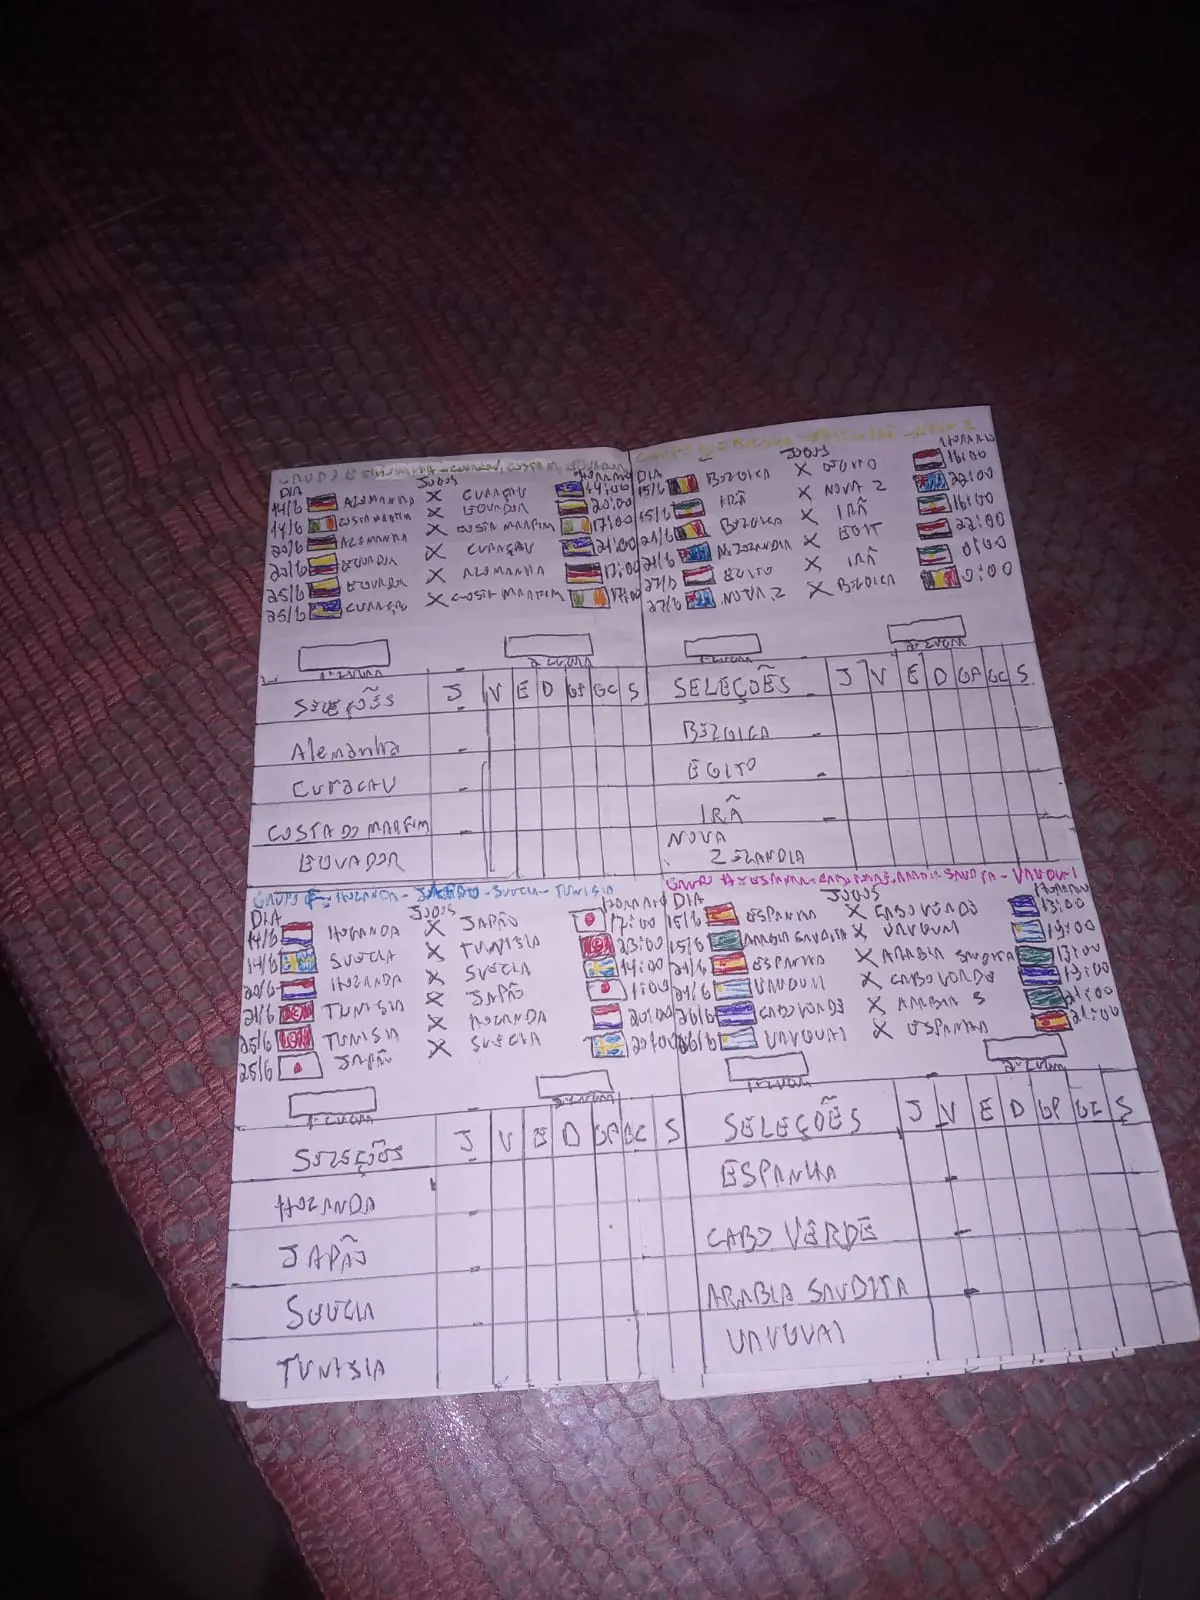 DIA JOGOS HORARIO
14/6 ALEMANHA X CURAÇAU 14:00
14/6 COSTA MARFIM X EQUADOR 20:00
20/6 ALEMANHA X COSTA MARFIM 17:00
EQUADOR X CURAÇAU 21:00
25/6 EQUADOR X ALEMANHA 17:00
25/6 CURAÇAU X COSTA MARFIM 17:00
SELEÇÕES J V E D GP GC S
Alemanha
Curacau
COSTA DO MARFIM
EQUADOR
DIA JOGOS HORARIO
15/6 BELGICA X EGITO 16:00
15/6 IRÃ X NOVA Z 22:00
21/6 BELGICA X IRÃ 16:00
21/6 N. ZELANDIA X EGIT 22:00
EGITO X IRÃ 0:00
NOVA Z X BELGICA 0:00
SELEÇÕES J V E D GP GC S
BELGICA
EGITO
IRÃ
NOVA
ZELANDIA
GRUPO F: HOLANDA - JAPÃO - SUECIA - TUNISIA
DIA JOGOS HORARIO
14/6 HOLANDA X JAPÃO 17:00
14/6 SUECIA X TUNISIA 23:00
20/6 HOLANDA X SUECIA 14:00
21/6 TUNISIA X JAPÃO 1:00
25/6 TUNISIA X HOLANDA 20:00
25/6 JAPÃO X SUECIA 20:00
SELEÇÕES J V E D GP GC S
HOLANDA
JAPÃO
SUECIA
TUNISIA
DIA JOGOS HORARIO
15/6 ESPANHA X CABO VERDE 13:00
15/6 ARABIA SAUDITA X URUGUAI 19:00
21/6 ESPANHA X ARABIA SAUDITA 13:00
21/6 URUGUAI X CABO VERDE 19:00
26/6 CABO VERDE X ARABIA S 21:00
26/6 URUGUAI X ESPANHA 21:00
SELEÇÕES J V E D GP GC S
ESPANHA
CABO VERDE
ARABIA SAUDITA
URUGUAI